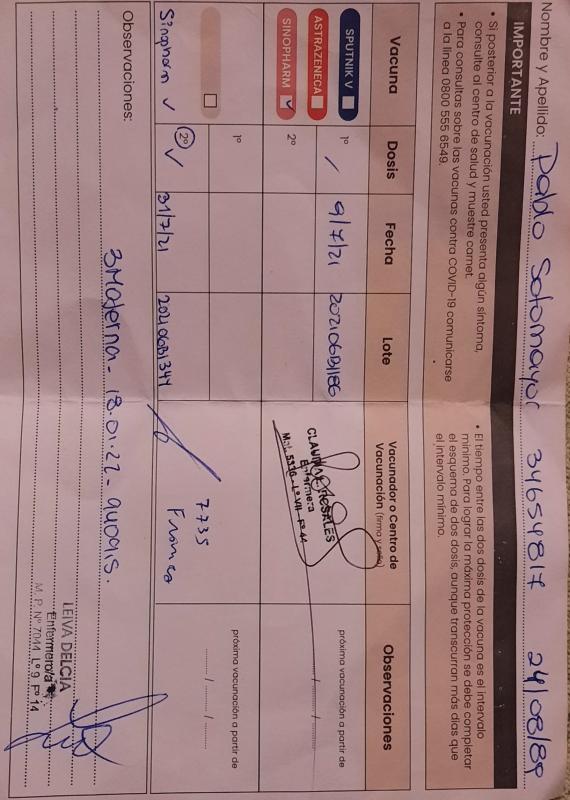 Nombre y Apellido: Pablo Sotomayor 34654817 24/08/89
IMPORTANTE
• Si posterior a la vacunación usted presenta algún síntoma,
consulte al centro de salud y muestre carnet.
• Para consultas sobre las vacunas contra COVID-19 comunicarse
a la línea 0800 555 6549.
• El tiempo entre las dos dosis de la vacuna es el intervalo
mínimo. Para lograr la máxima protección se debe completar
el esquema de dos dosis, aunque transcurran más días que
el intervalo mínimo.
Vacuna Dosis Fecha Lote Vacunador o Centro de Vacunación (firma y sello) Observaciones
SPUTNIK V
ASTRAZENECA
SINOPHARM ✓
1º 9/7/21 202106B1186
CLAUDIA E. ROSALES
Enfermera
M.P. 5336 - Lº VII Fº 44
próxima vacunación a partir de
...... / ......
2º
1º
próxima vacunación a partir de
...... / ......
Sinopharm ✓ 2º ✓ 31/7/21 202106B1314 7735
Franco
Observaciones:
3Moderna - 18.01.22 - 940915.
LEIVA DELCIA
Enfermero/a
M. P. Nº 7044 Lº 9 Fº 14